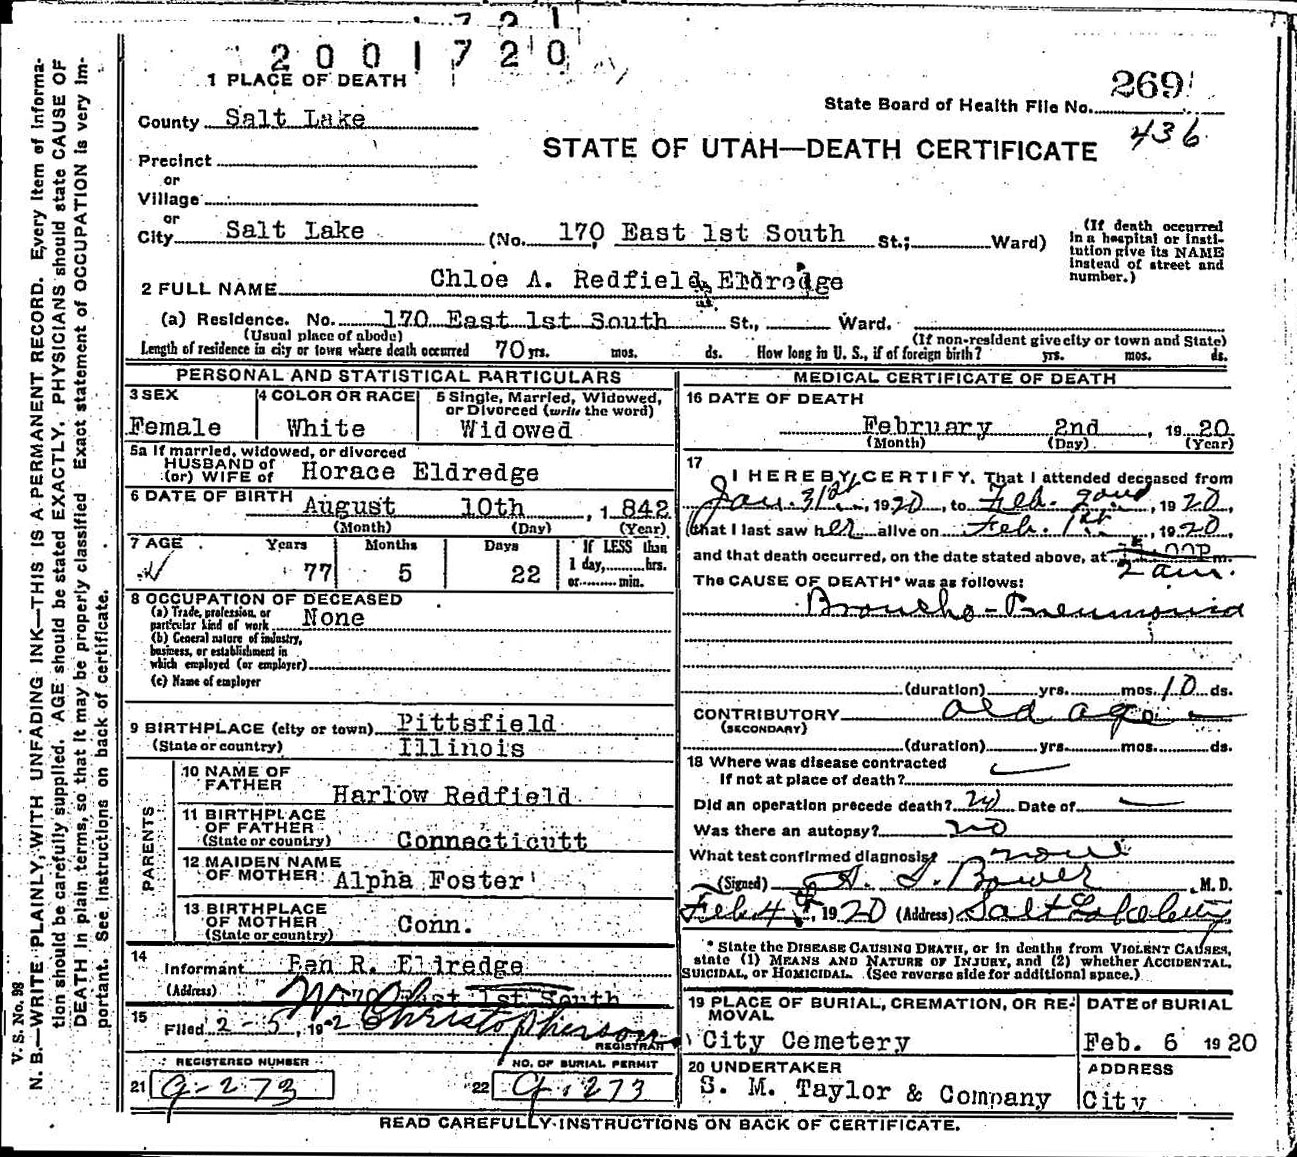 2001720
1 PLACE OF DEATH
269
State Board of Health File No.
436
County Salt Lake
STATE OF UTAH—DEATH CERTIFICATE
Precinct
or
Village
or
City Salt Lake (No. 170 East 1st South St.; Ward)
(If death occurred in a hospital or institution give its NAME instead of street and number.)
2 FULL NAME Chloe A. Redfield Eldredge
(a) Residence. No. 170 East 1st South St., Ward.
(Usual place of abode) (If non-resident give city or town and State)
Length of residence in city or town where death occurred 70 yrs. mos. ds. How long in U. S., if of foreign birth? yrs. mos. ds.
PERSONAL AND STATISTICAL PARTICULARS
3 SEX
Female
4 COLOR OR RACE
White
5 Single, Married, Widowed,
or Divorced (write the word)
Widowed
5a If married, widowed, or divorced
HUSBAND of
(or) WIFE of Horace Eldredge
6 DATE OF BIRTH August 10th, 1 842
(Month) (Day) (Year)
7 AGE Years Months Days If LESS than
1 day, hrs.
or min.
77 5 22
8 OCCUPATION OF DECEASED
(a) Trade, profession, or
particular kind of work None
(b) General nature of industry,
business, or establishment in
which employed (or employer)
(c) Name of employer
9 BIRTHPLACE (city or town) Pittsfield
(State or country) Illinois
PARENTS
10 NAME OF
FATHER Harlow Redfield
11 BIRTHPLACE
OF FATHER
(State or country) Connecticutt
12 MAIDEN NAME
OF MOTHER Alpha Foster
13 BIRTHPLACE
OF MOTHER
(State or country) Conn.
14
Informant Ben R. Eldredge
(Address) 170 East 1st South
15
Filed 2-5, 192 Christopherson
REGISTRAR
REGISTERED NUMBER NO. OF BURIAL PERMIT
21 g-273 22 g.273
MEDICAL CERTIFICATE OF DEATH
16 DATE OF DEATH
February 2nd, 1920
(Month) (Day) (Year)
17
I HEREBY CERTIFY, That I attended deceased from
Jan. 31st, 1920, to Feb. 2nd, 1920,
that I last saw her alive on Feb. 1st, 1920,
and that death occurred, on the date stated above, at m.
2 am.
The CAUSE OF DEATH* was as follows:
Broncho-Pneumonia
(duration) yrs. mos. 10 ds.
CONTRIBUTORY old age
(SECONDARY)
(duration) yrs. mos. ds.
18 Where was disease contracted
If not at place of death?
Did an operation precede death? no Date of
Was there an autopsy? no
What test confirmed diagnosis? none
(Signed) Bower, M. D.
Feb 4, 1920 (Address) Salt Lake City
* State the DISEASE CAUSING DEATH, or in deaths from VIOLENT CAUSES,
state (1) MEANS AND NATURE OF INJURY, and (2) whether ACCIDENTAL,
SUICIDAL, or HOMICIDAL. (See reverse side for additional space.)
19 PLACE OF BURIAL, CREMATION, OR RE-
MOVAL
City Cemetery
DATE of BURIAL
Feb. 6 1920
20 UNDERTAKER
S. M. Taylor & Company
ADDRESS
City
READ CAREFULLY INSTRUCTIONS ON BACK OF CERTIFICATE.
V. S. No. 98
N. B.—WRITE PLAINLY, WITH UNFADING INK—THIS IS A PERMANENT RECORD. Every item of informa-
tion should be carefully supplied. AGE should be stated EXACTLY. PHYSICIANS should state CAUSE OF
DEATH in plain terms, so that it may be properly classified. Exact statement of OCCUPATION is very im-
portant. See instructions on back of certificate.